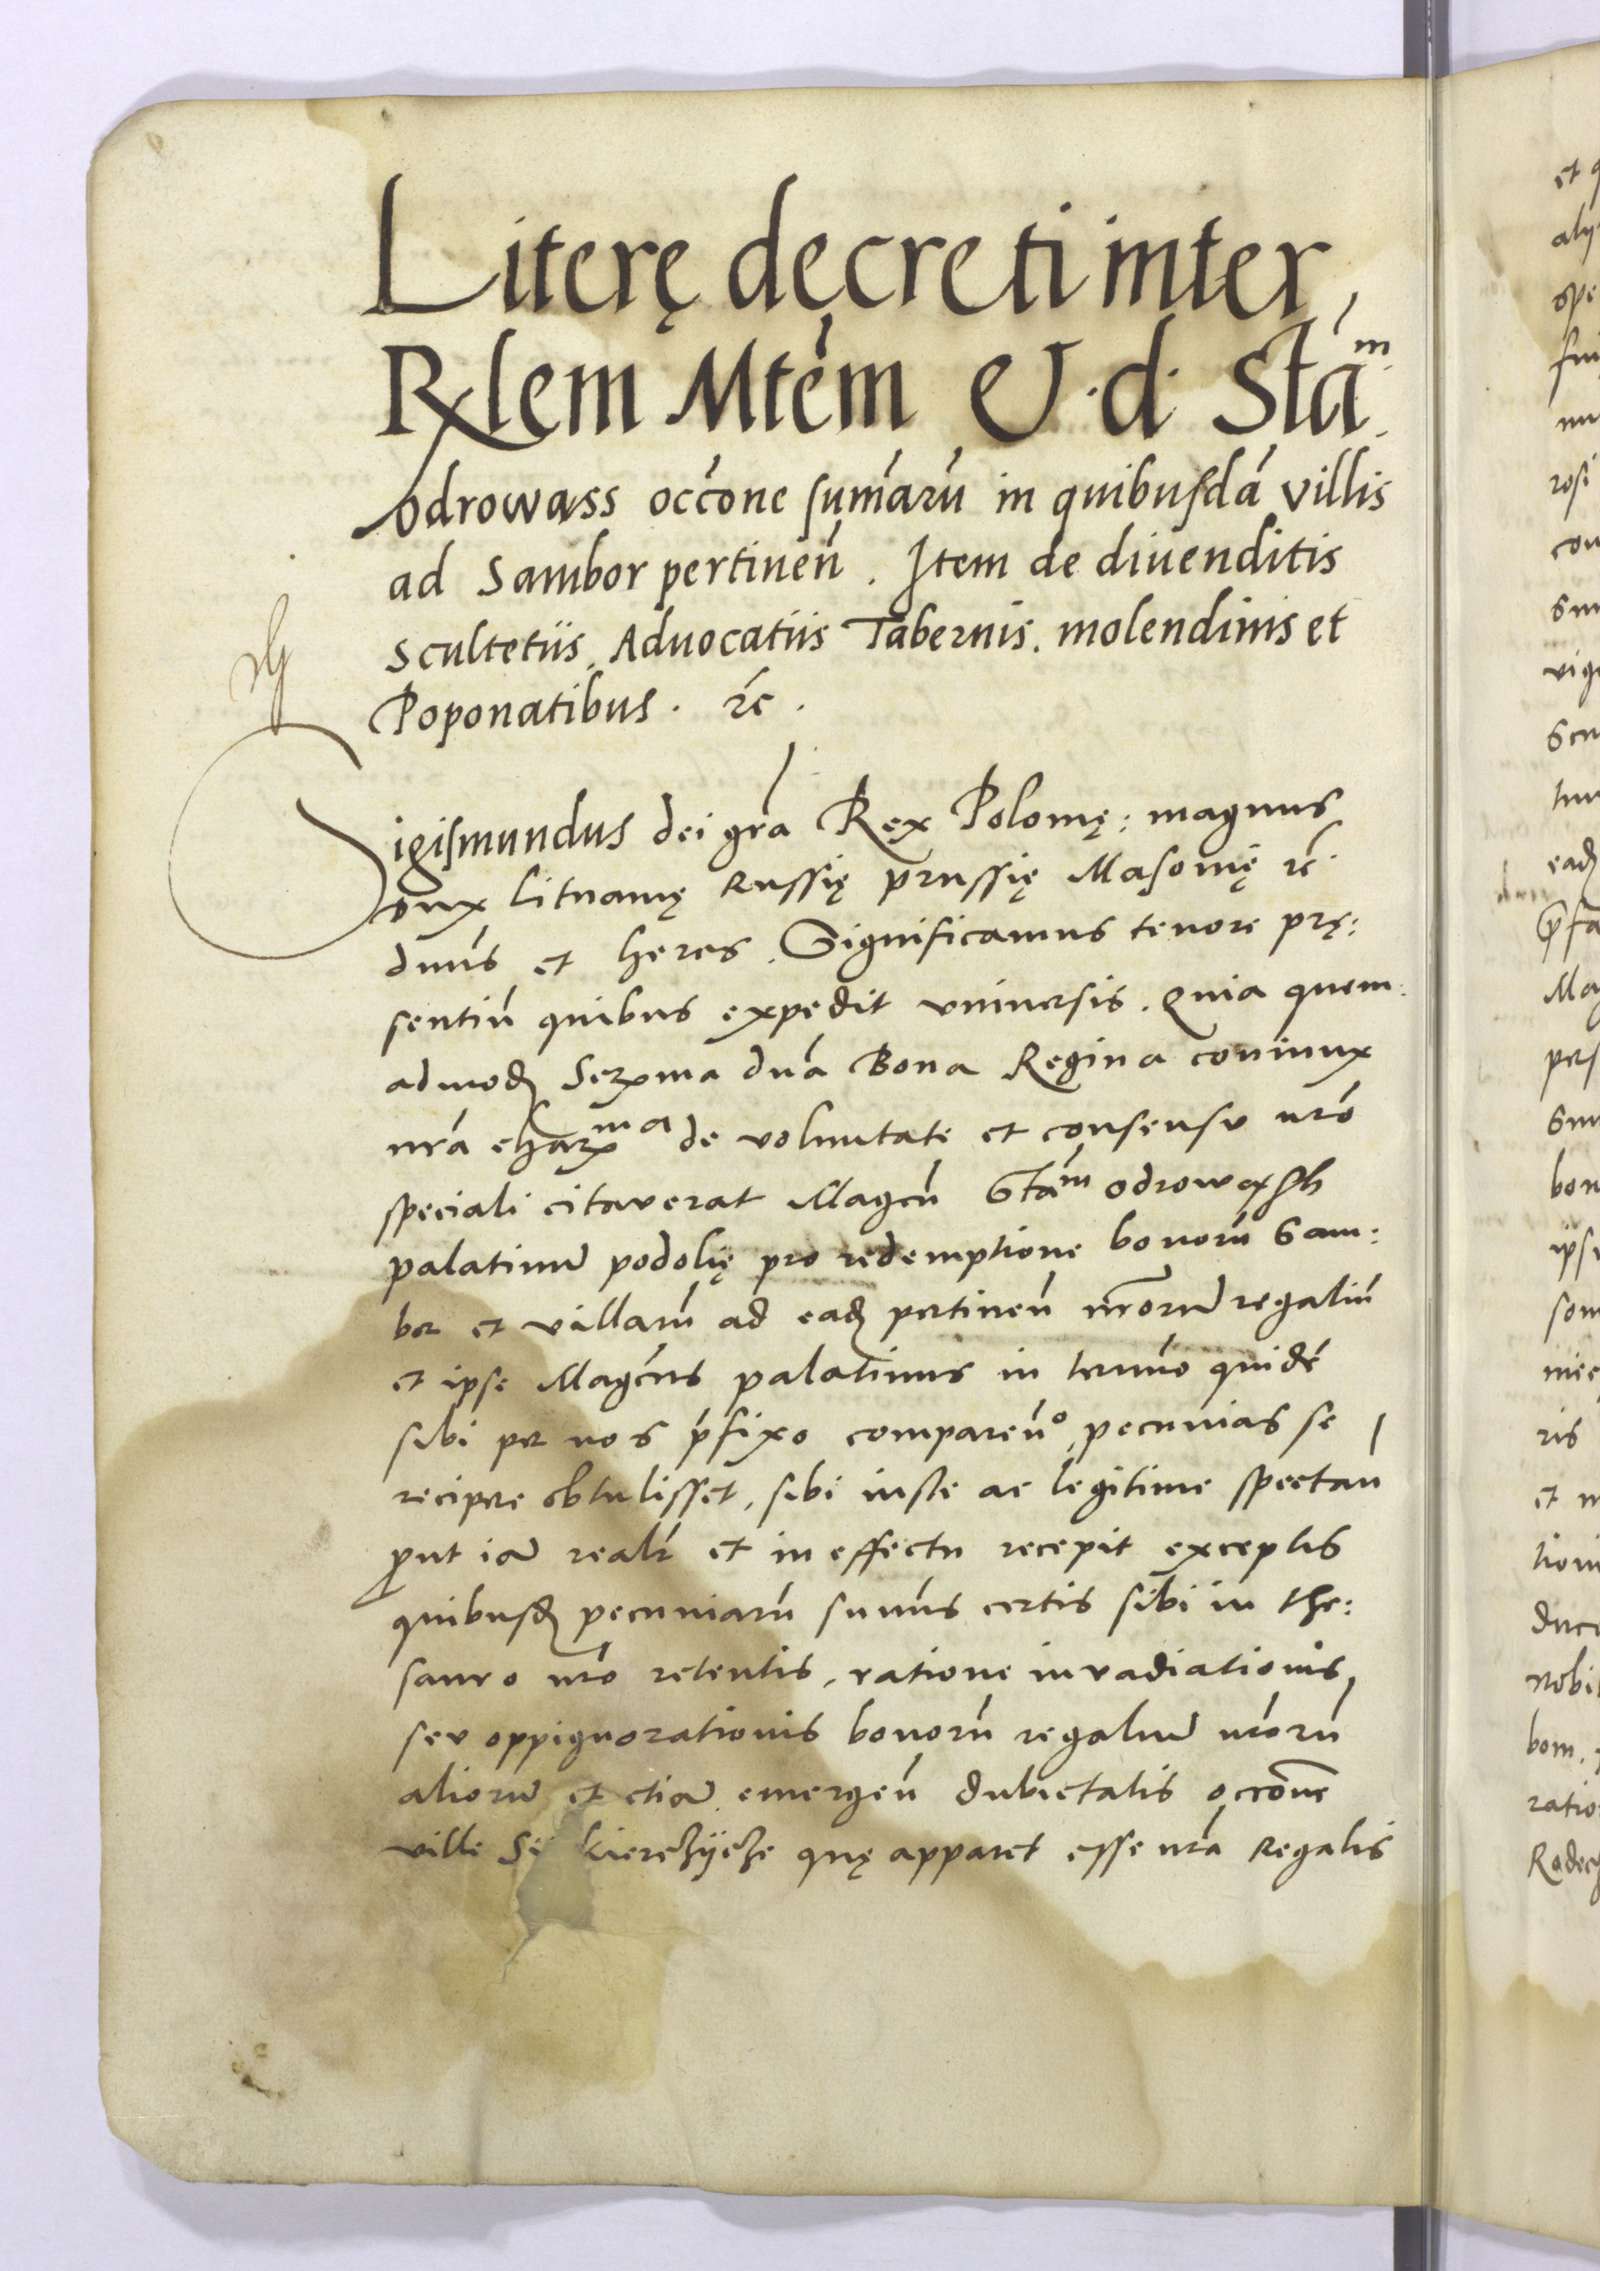 Literę decreti inter
Rxlem Mtem E. d. Stam
Odrowass occone sumaru in quibusda villis
ad Sambor pertinen. Item de diuenditis
Scultetiis, Aduocatiis Tabernis, molendinis et
Poponatibus. rc.
Sigismundus dei gra Rex Polonię: magnus
Dux Lituanię Russię prussię Masouię rc
dnus et heres. Significamus tenore prę:
sentiu quibus expedit vniuersis. Quia quem:
admod Serxma dna Bona Regina coniunx
nra charxma de voluntate et consensu nro
speciali citauerat Magcu Stam odrowassh
palatinu podolię pro redemptione bonoru Sam:
bor et villaru ad ead pertinen nroru regaliu
et ipse Magcus palatinus in termo quide
sibi per nos pfixo comparen, pecunias se
recipere obtulisset, sibi iuste ac legitime spectan
prout ia realr et in effectu recepit exceptis
quibusd pecuniaru sumis certis sibi in the:
sauro nro retentis, ratione inuadiationis
seu oppignorationis bonoru regaliu nroru
alioru et etia emergen dubietatis occone
ville Si kierchycze quę apparet esse nra Regalis